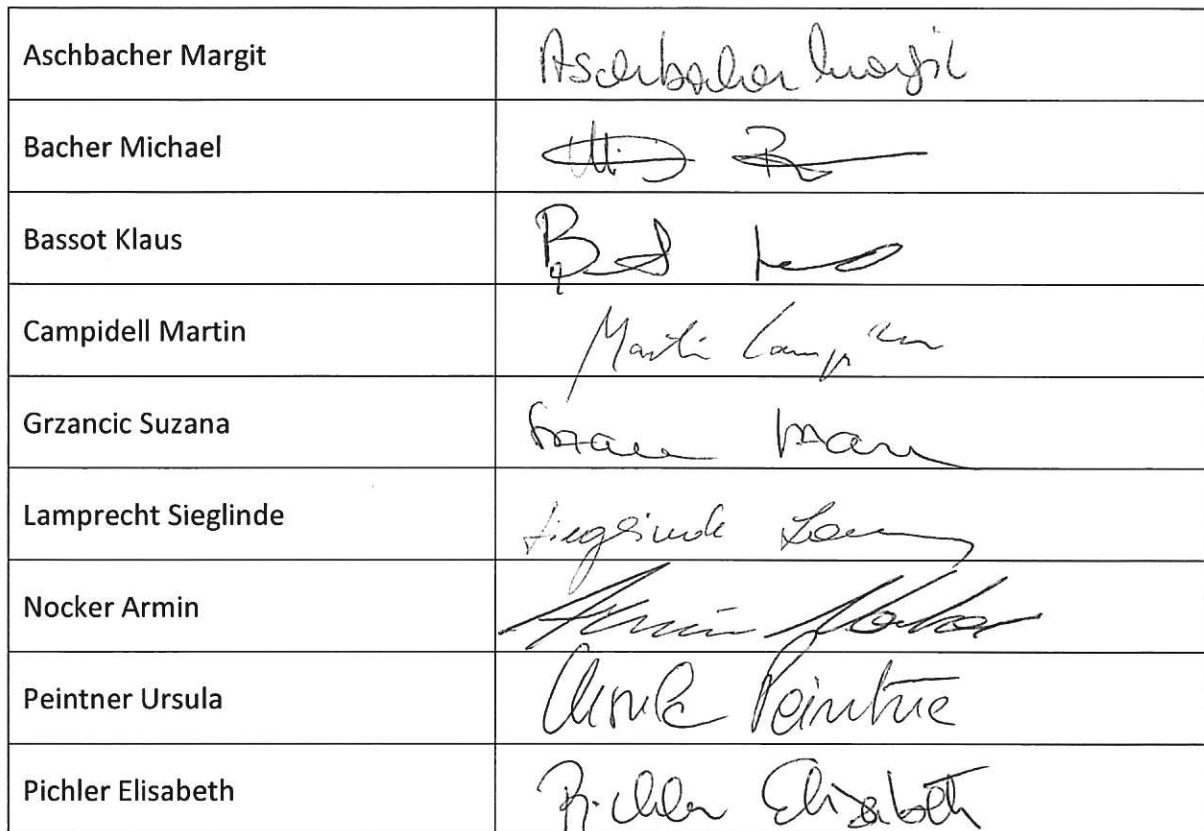 Aschbacher Margit Aschbacher Margit
Bacher Michael
Bassot Klaus
Campidell Martin Martin
Grzancic Suzana
Lamprecht Sieglinde Sieglinde
Nocker Armin Armin Nocker
Peintner Ursula Ursula Peintner
Pichler Elisabeth Pichler Elisabeth